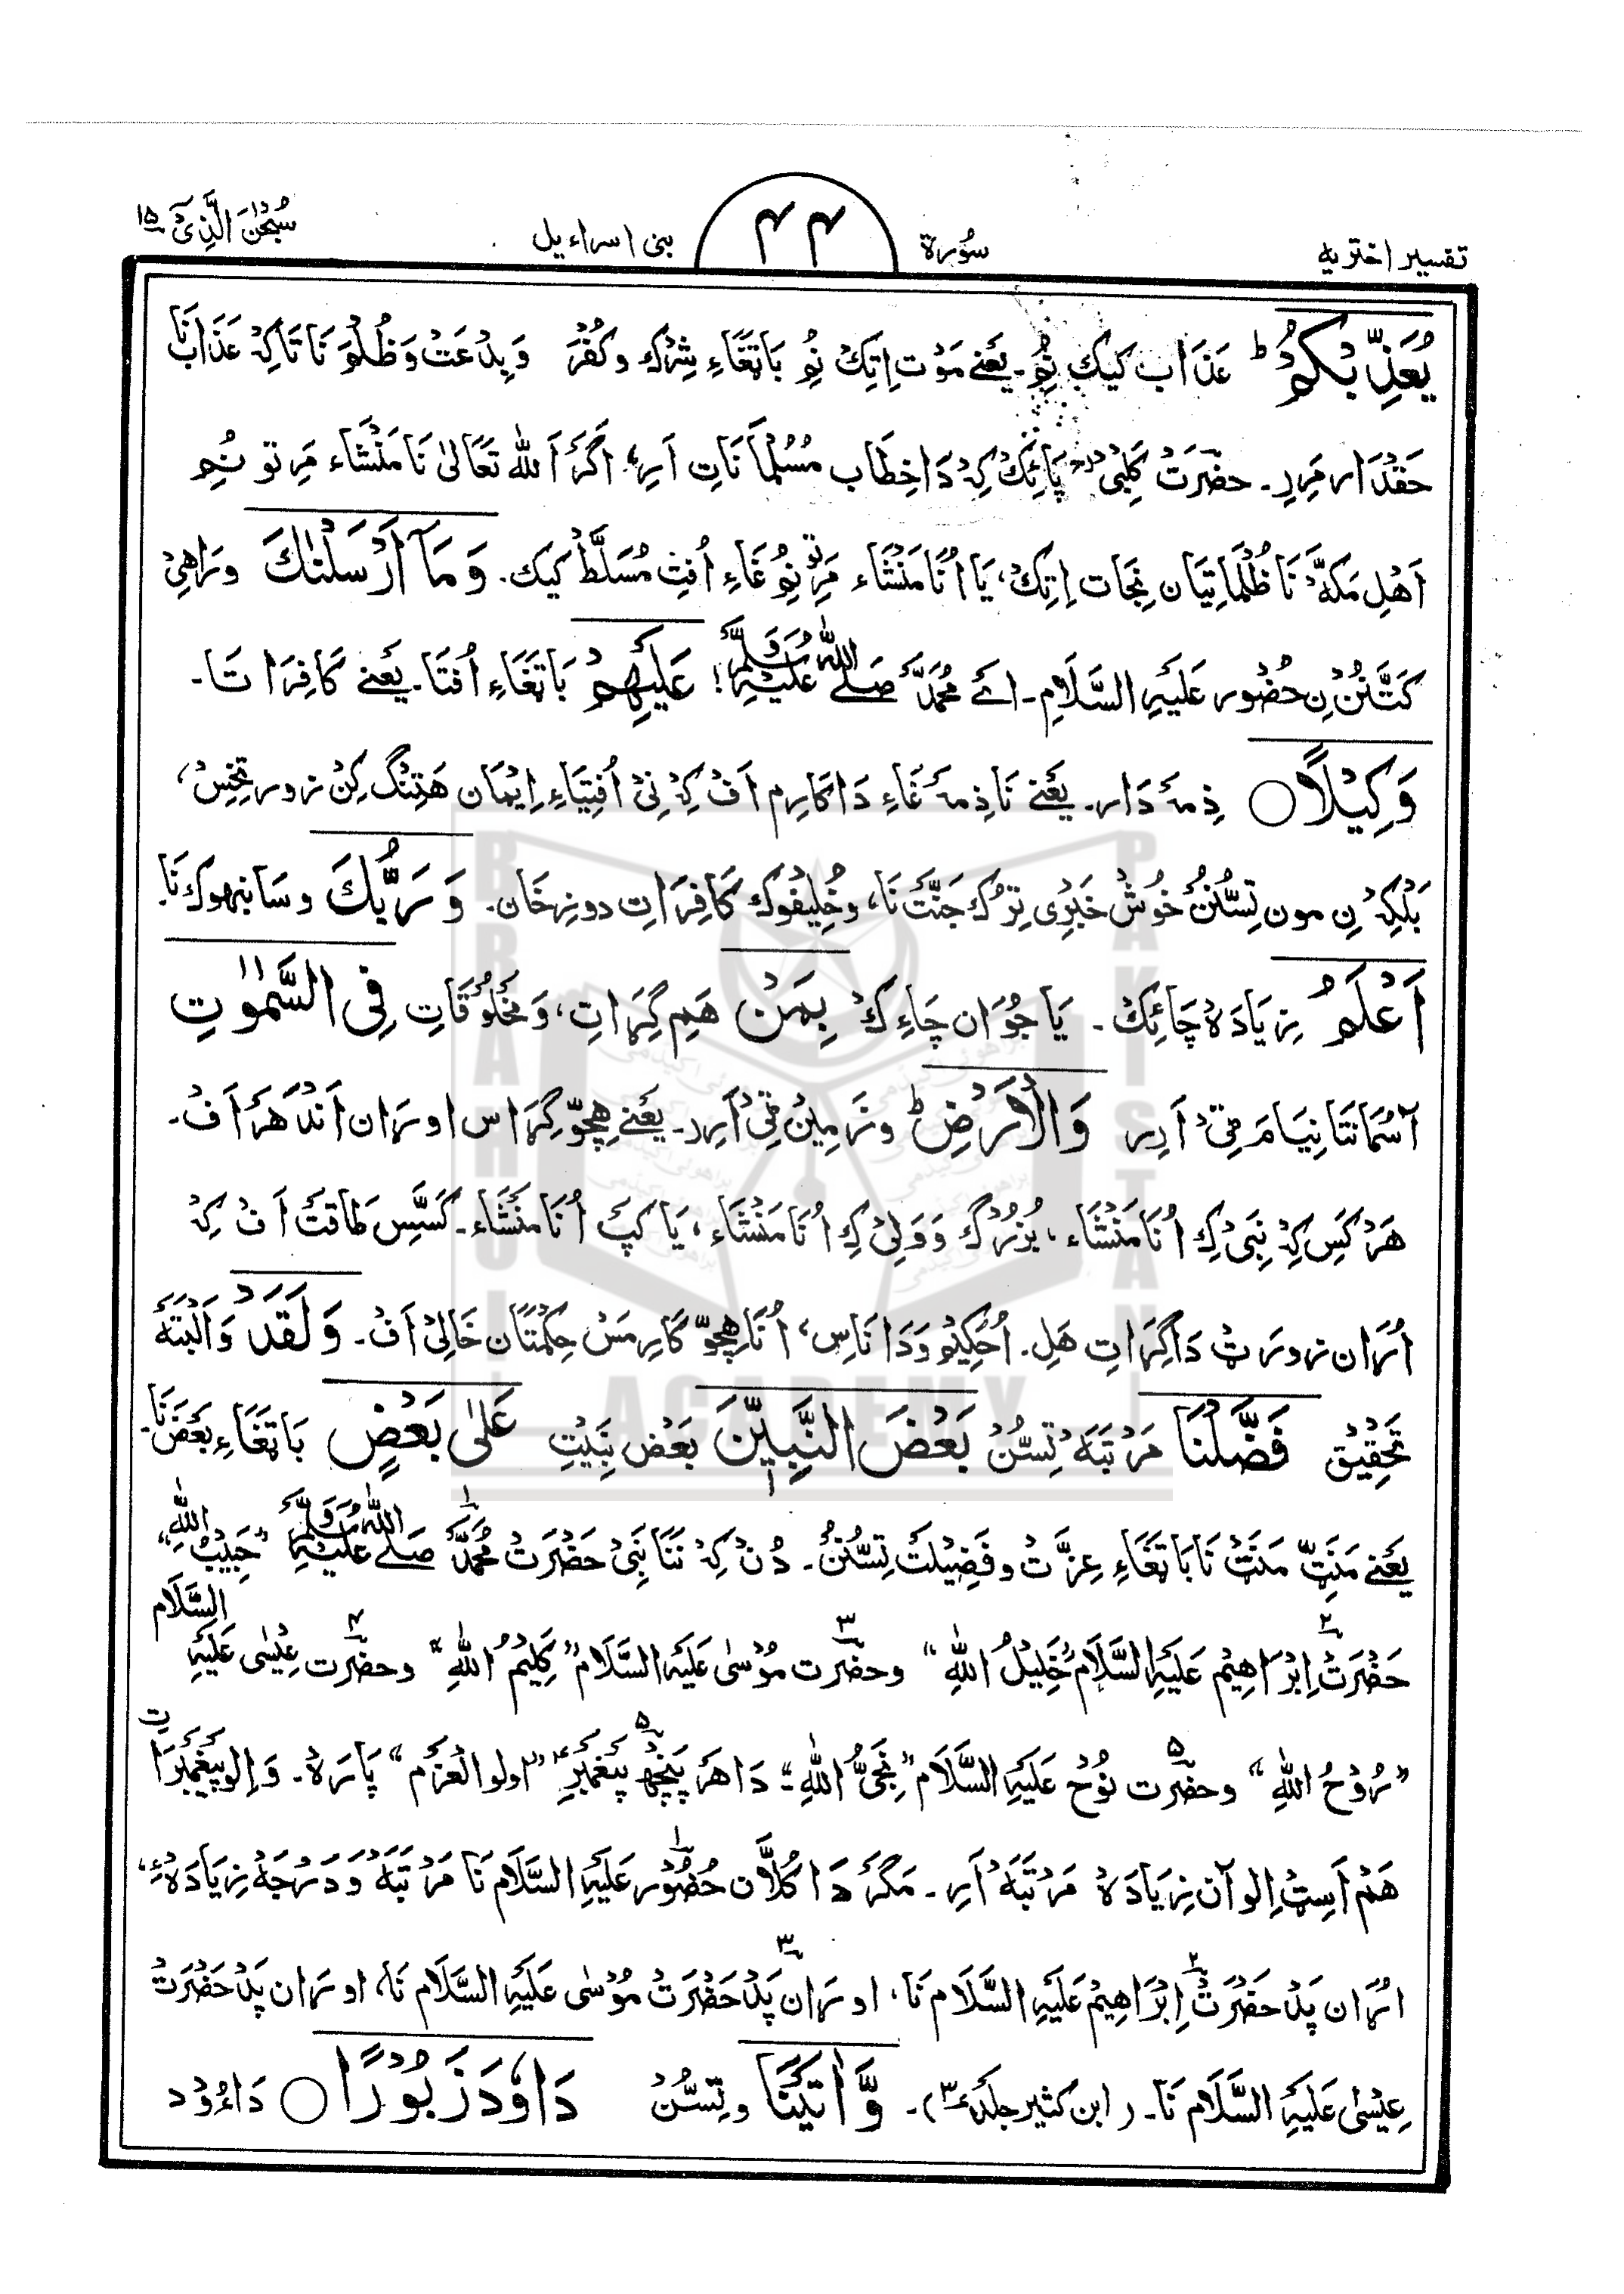 تفسیر اختریه سُوْرة ۴۴ بنی اسراءیل سُبْحٰنَ الَّذِیْٓ ۱۵
یُعَذِّبْکُمْ ؕ عَذَاب کیک نُم۔ یعنے مَوْت اِتِک نُم بَاتِغَاءِ شِرْک وکُفْرَ وَبِدْعَتْ وَظُلْمَ نَا تَاکِہْ عَذَابْ نَا
حَقْدَار مَرِیر۔ حضرَتْ کَلْبِیْؒ پَائِکْ کِہْ دَا خِطَاب مُسُلمَانَاتِ اَرِ، اَگَرْ اَللّٰه تَعَالیٰ نَا مَنْشَاء مَرِ تو نُم
اَهْلِ مَکَّہْ نَا ظُلْمَاتِیَان نِجَات اِتِکْ، یَا اُنَا مَنْشَاء مَرِ تو نُمْ غَاءِ اُفْتِ مُسَلَّطْ کیک۔ وَمَآ اَرْسَلْنٰكَ وَرَاهِیْ
کَتَّنُنْ نِ حضُور عَلَیْهِ السَّلَامِ۔ اے مُحَمَّدْ صَلَے اللّٰهُ عَلَیْهِ وَسَلَّمَ! عَلَیْهِمْ بَاتِغَاءِ اُفْتَا۔ یعنے کَافِرَاتَا۔
وَکِیْلًا ○ ذِمّہ دَار۔ یعنے نَا ذِمّہ غَاءِ دَا کَارِم اَفْ کِہْ نِیْ اُفْتِیَاءِ اِیْمَان هَتِنْگ کِنْ زور تِخِسْ،
بَلْکِہْ نِ مون تِسُّنُنْ خُوشْ خَبَرِی تِرُکْ جَنَّتْ نَا، وخُلِیفُوک کَافِرَاتِ دوزخَان۔ وَرَبُّكَ وسَابنھوک نَا۔
اَعْلَمُ زِیَادَہْ چَائِکْ۔ یَا جُوَان چَاءِکْ بِمَنْ هَم گِرَاتِ، وَمَخْلُوْقَاتِ فِی السَّمٰوٰتِ
آسْمَانتَا نِیَامَ ٹِیْ اَرِر وَالْاَرْضِ ؕ وزَمِیْن ٹِیْ اَرِر۔ یعنے هِچّو گِرَاس اوڑان اَنْدَهَرَ اَفْ۔
هَرْ کَس کِہْ نَبِیْ کِ اُنَا مَنْشَاء، بُزُرْگ وَوَلِیْ کِ اُنَا مَنْشَاء، یَا کپَ اُنَا مَنْشَاء۔ کَسِّسْ طَاقتْ اَفْ کِہْ
اُڑان زورَٹْ دَا گِرَاتِ هَلِ۔ اُحَکِیْمو وَدَانَاسِ، اُنَا هِچّو کَارِمَسْ حِکْمَتَان خَالِیْ اَفْ۔ وَلَقَدْ وَاَلْبَتّہ
تَحْقِیْق فَضَّلْنَا مَرْتَبَہ تِسُّنْ بَعْضَ النَّبِیّٖنَ بَعْضِ نَبِیتِ عَلٰی بَعْضٍ بَاتِغَاءِ بَعْضْ نَا۔
یعنے مَنَتِ مَنَتْ نَا بَاتِغَاءِ عِزَّتْ وفَضِیلَت تِسُّنُنْ۔ دُنْ کِہْ نَنَا نَبِیْ حَضْرَتْ مُحَمَّدْ صَلَے اللّٰهُ عَلَیْهِ وَسَلَّمَ "حَبِیْبُ اللّٰهِ"،
حَضْرَتْ اِبْرَاهِیْم عَلَیْهِ السَّلَام "خَلِیْلُ اللّٰهِ" وحضْرت مُوْسٰی عَلَیْهِ السَّلَام "کَلِیْمُ اللّٰهِ" وحضْرت عِیْسٰی عَلَیْهِ السَّلَام
"رُوْحُ اللّٰهِ" وحضْرت نُوْح عَلَیْهِ السَّلَام "نَجِیُّ اللّٰهِ"۔ دَا هَرْ پَنْچْ پَیْغَمْبَرِ "اولو العَزْم" پَارَہ۔ وَاِلو پَیْغَمْبَرَاتِ
هَم اَسِٹْ اِلو آن زِیَادَہْ مَرْتَبَہ اَرِ۔ مَگَرْ دَا کُلَّان حُضُوْر عَلَیْهِ السَّلَام نَا مَرْتَبَہ وَدَرْجَہْ زِیَادَہْ ءِ،
اڑان پَدْ حَضْرَتْ اِبْرَاهِیْم عَلَیْهِ السَّلَام نَا، اوڑان پَدْ حَضْرَتْ مُوْسٰی عَلَیْهِ السَّلَام نَا، اوڑان پَدْ حَضْرَتْ
عِیْسٰی عَلَیْهِ السَّلَام نَا۔ (ابن کثیر جلد ۳)۔ وَّاٰتَیْنَا وتِسُّنْ دَاوٗدَ زَبُوْرًا ○ دَاءُوْد
BRAHUI ACADEMY PAKISTAN